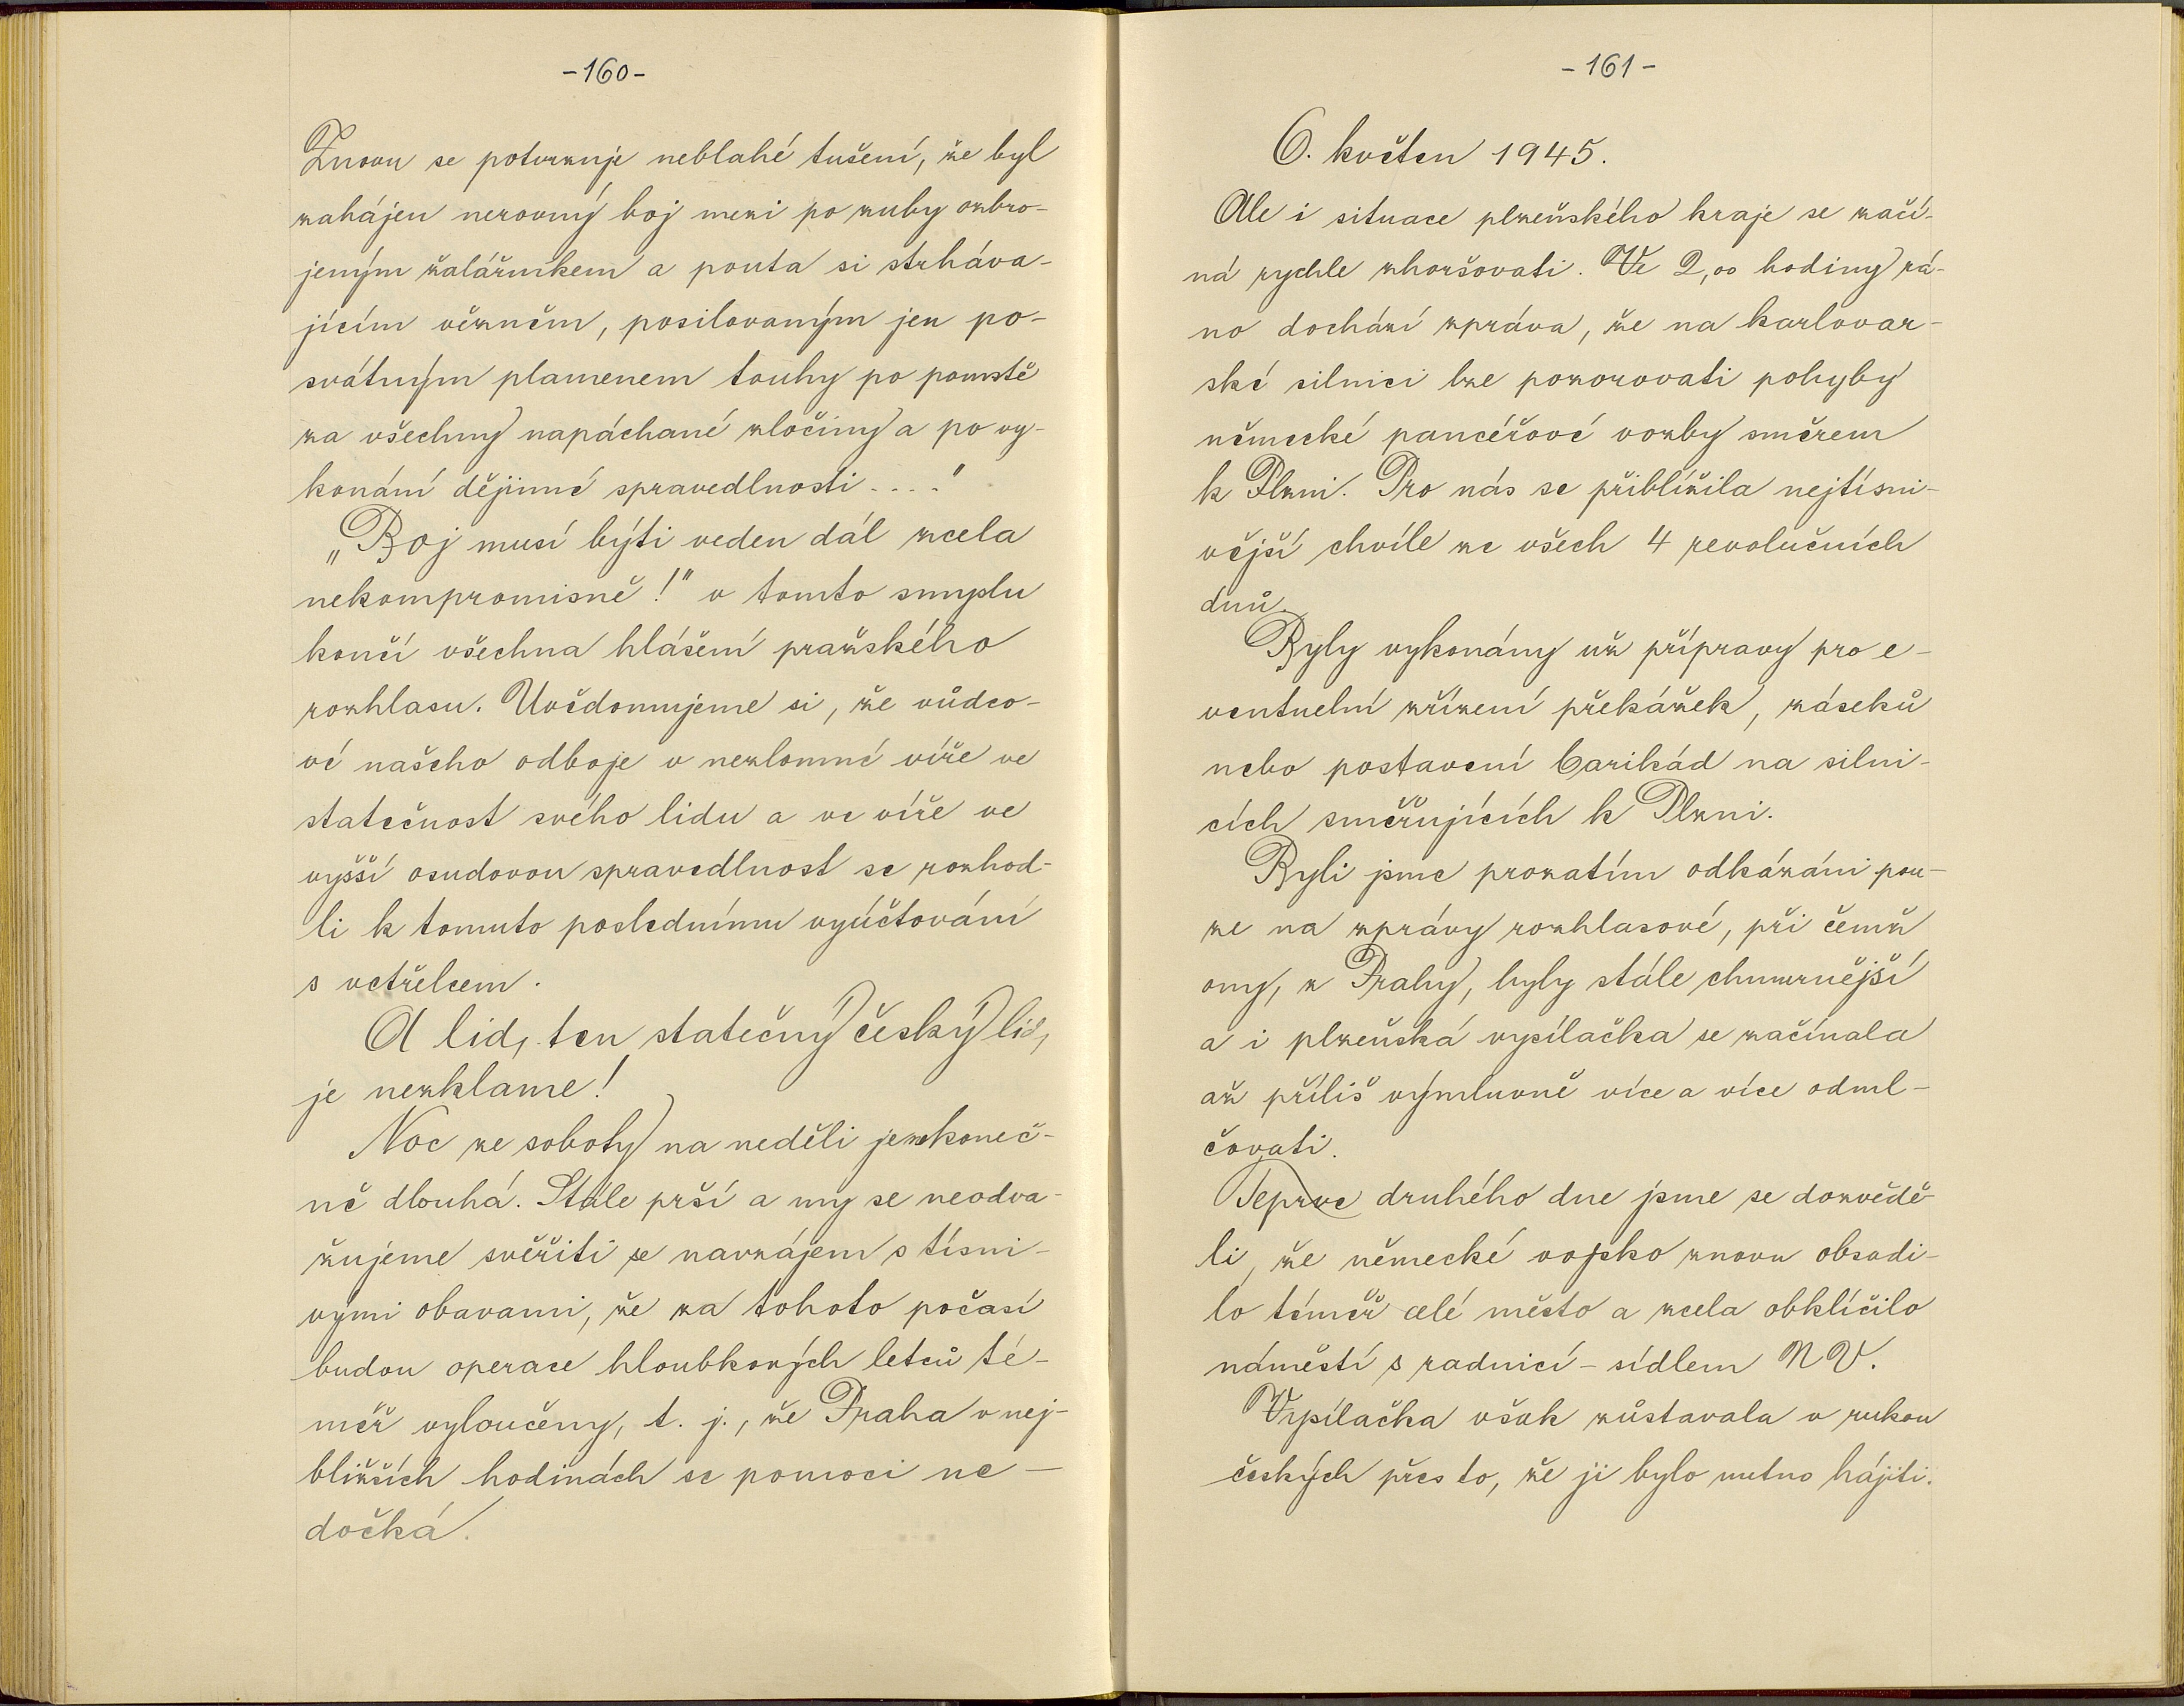 -160-
Znovu se potvrzuje neblahé tušení, že byl
zahájen nerovný boj mezi po zuby ozbro-
jeným žalářníkem a pouta si strháva-
jícím vězněm, posilovaným jen po-
svátným plamenem touhy po pomstě
za všechny napáchané zločiny a po vy-
konání dějinné spravedlnosti...."
„Boj musí býti veden dál zcela
nekompromisně!" v tomto smyslu
končí všechna hlášení pražského
rozhlasu. Uvědomujeme si, že vůdco-
vé našeho odboje v nezlomné víře ve
statečnost svého lidu a ve víře ve
vyšší osudovou spravedlnost se rozhod-
li k tomuto poslednímu vyúčtování
s vetřelcem.
A lid, ten statečný český lid,
je nezklame!
Noc ze soboty na neděli je nekoneč-
ně dlouhá. Stále prší a my se neodva-
žujeme svěřiti se navzájem s tísni-
vými obavami, že za tohoto počasí
budou operace hloubkových letců té-
měř vyloučeny, t. j., že Praha v nej-
bližších hodinách se pomoci ne-
dočká.
-161-
6. květen 1945.
Ale i situace plzeňského kraje se začí-
ná rychle zhoršovati. Ve 2,00 hodiny rá-
no dochází zpráva, že na karlovar-
ské silnici lze pozorovati pohyby
německé pancéřové vozby směrem
k Plzni. Pro nás se přiblížila nejtísni-
vější chvíle ze všech 4 revolučních
dnů.
Byly vykonány už přípravy pro e-
ventuelní zřízení překážek, záseků
nebo postavení barikád na silni-
cích směřujících k Plzni.
Byli jsme prozatím odkázáni pou-
ze na zprávy rozhlasové, při čemž
ony, z Prahy, byly stále chmurnější
a i plzeňská vysílačka se začínala
až příliš výmluvně více a více odml-
čovati.
Teprve druhého dne jsme se dozvědě-
li, že německé vojsko znovu obsadi-
lo téměř celé město a zcela obklíčilo
náměstí s radnicí - sídlem N V.
Vysílačka však zůstavala v rukou
českých přes to, že ji bylo nutno hájiti.